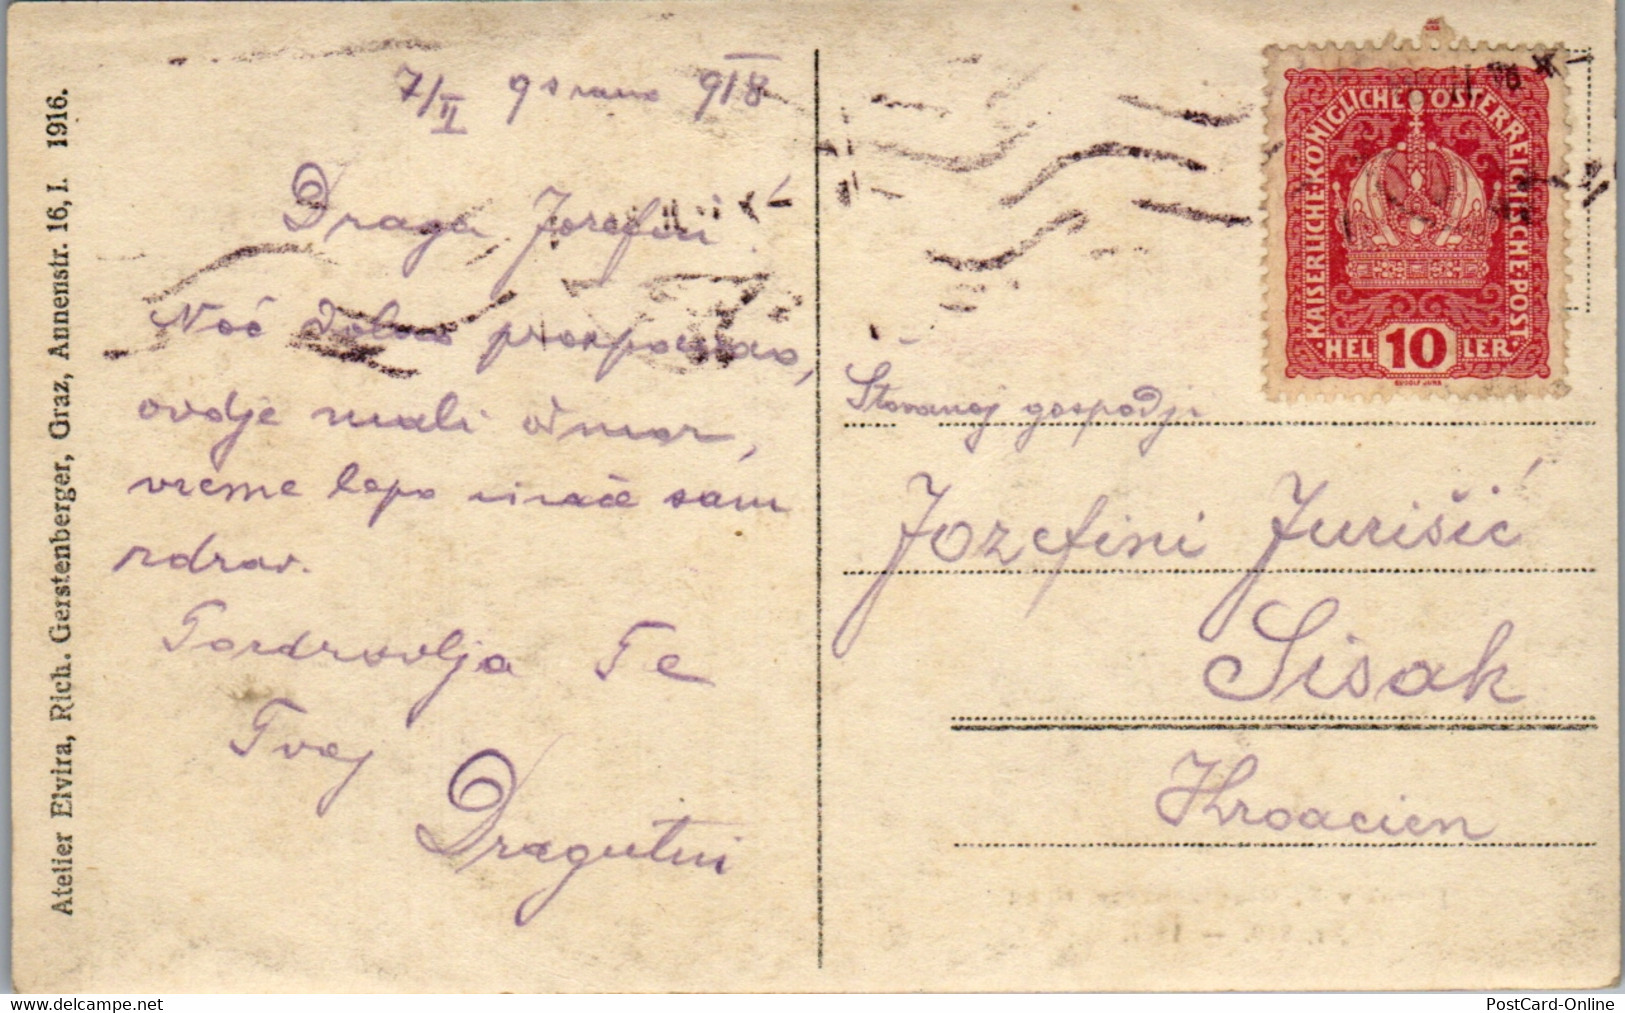 7/II 9 s rano 918
Draga Jozefin
Noć dobro prospavao,
ovdje mali odmor,
vreme lepo inače sam
zdrav.
Pozdravlja Te
Tvoj
Dragutin
Atelier Elvira, Rich. Gerstenberger, Graz, Annenstr. 16, I. 1916.
KAISERLICHE KÖNIGLICHE ÖSTERREICHISCHE POST
HELLER
10
RUDOLF JUNG
Štovanoj gospodji
Jozefini Jurišić
Sisak
Kroacien
PostCard-Online
www.delcampe.net